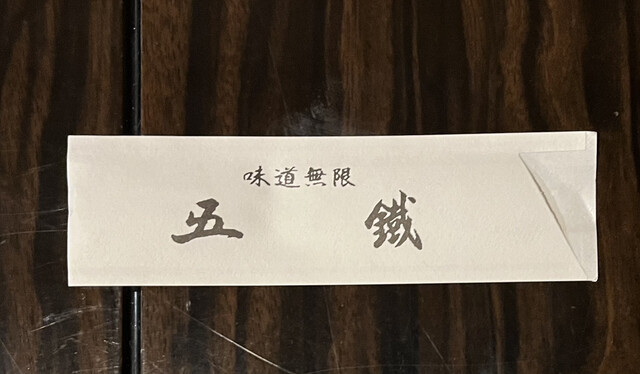 味道無限
五鐵